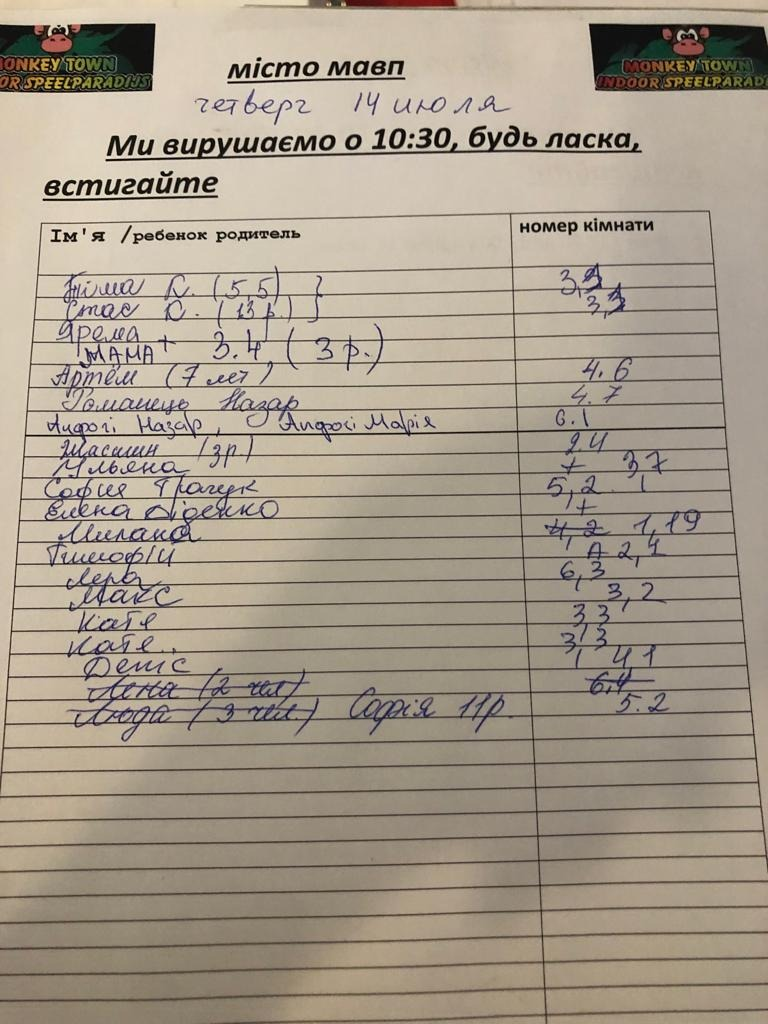 MONKEY TOWN
INDOOR SPEELPARADIJS
місто мавп
MONKEY TOWN
INDOOR SPEELPARADIJS
четверг 14 июля
Ми вирушаємо о 10:30, будь ласка,
встигайте
Ім'я /ребенок родитель номер кімнати
К. (5,5) }
Стас К. (13 р.) }
Ярема
МАМА + 3.4 (3 р.)
Артём (7 лет) 4.6
Романець Назар 4.7
Андрогі Назар, Марія 6.1
(3р.) 2.4
Ульяна + 37
София 5,2
Елена Діденко +
Милана 4,2 1,19
Тимофій 2,1
Лера 6,3
Макс 3,2
Катя 33
Катя.. 3,3
Деніс 4,1
Лена (2 чел) 6,4
Люда (3 чел.) Софія 11р. 5.2